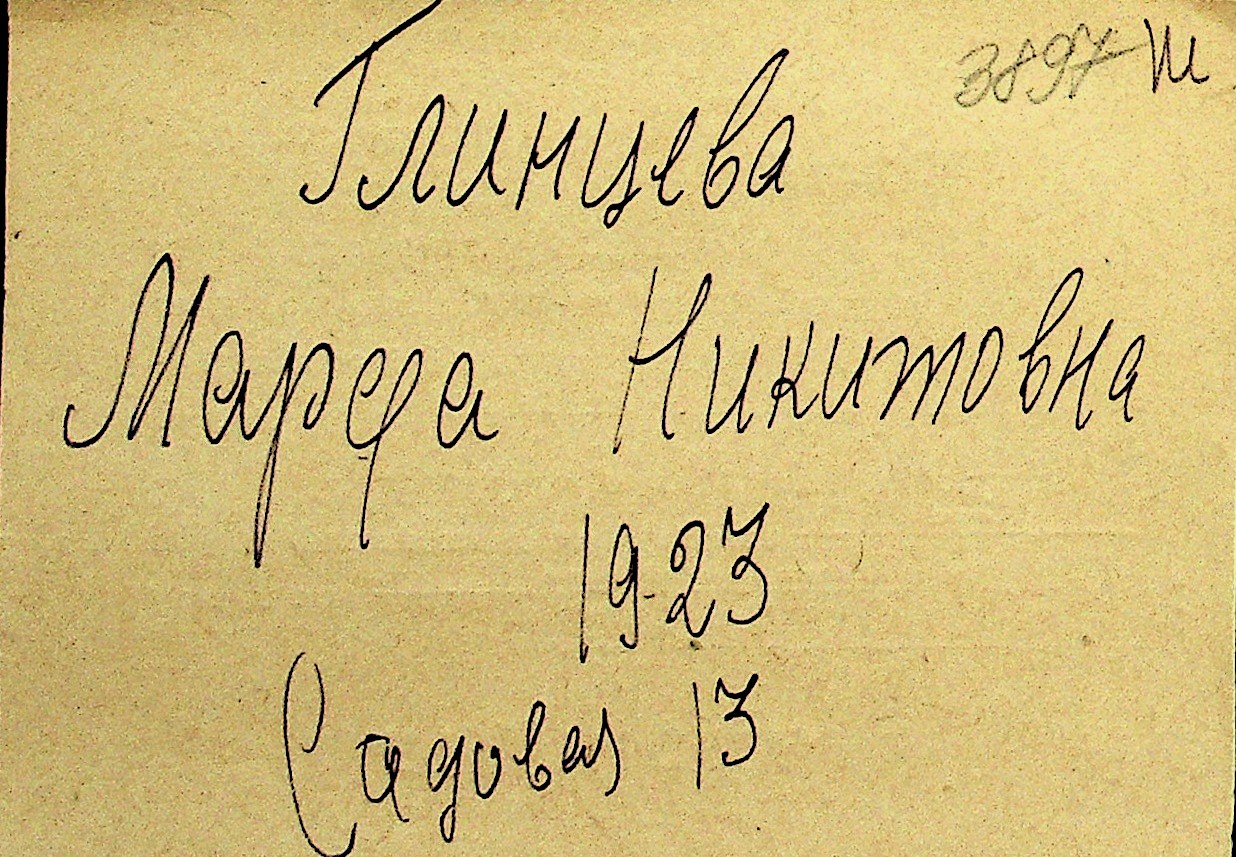 3897 Ш
Глинцева
Марфа Никитовна
1923
Садовая 13